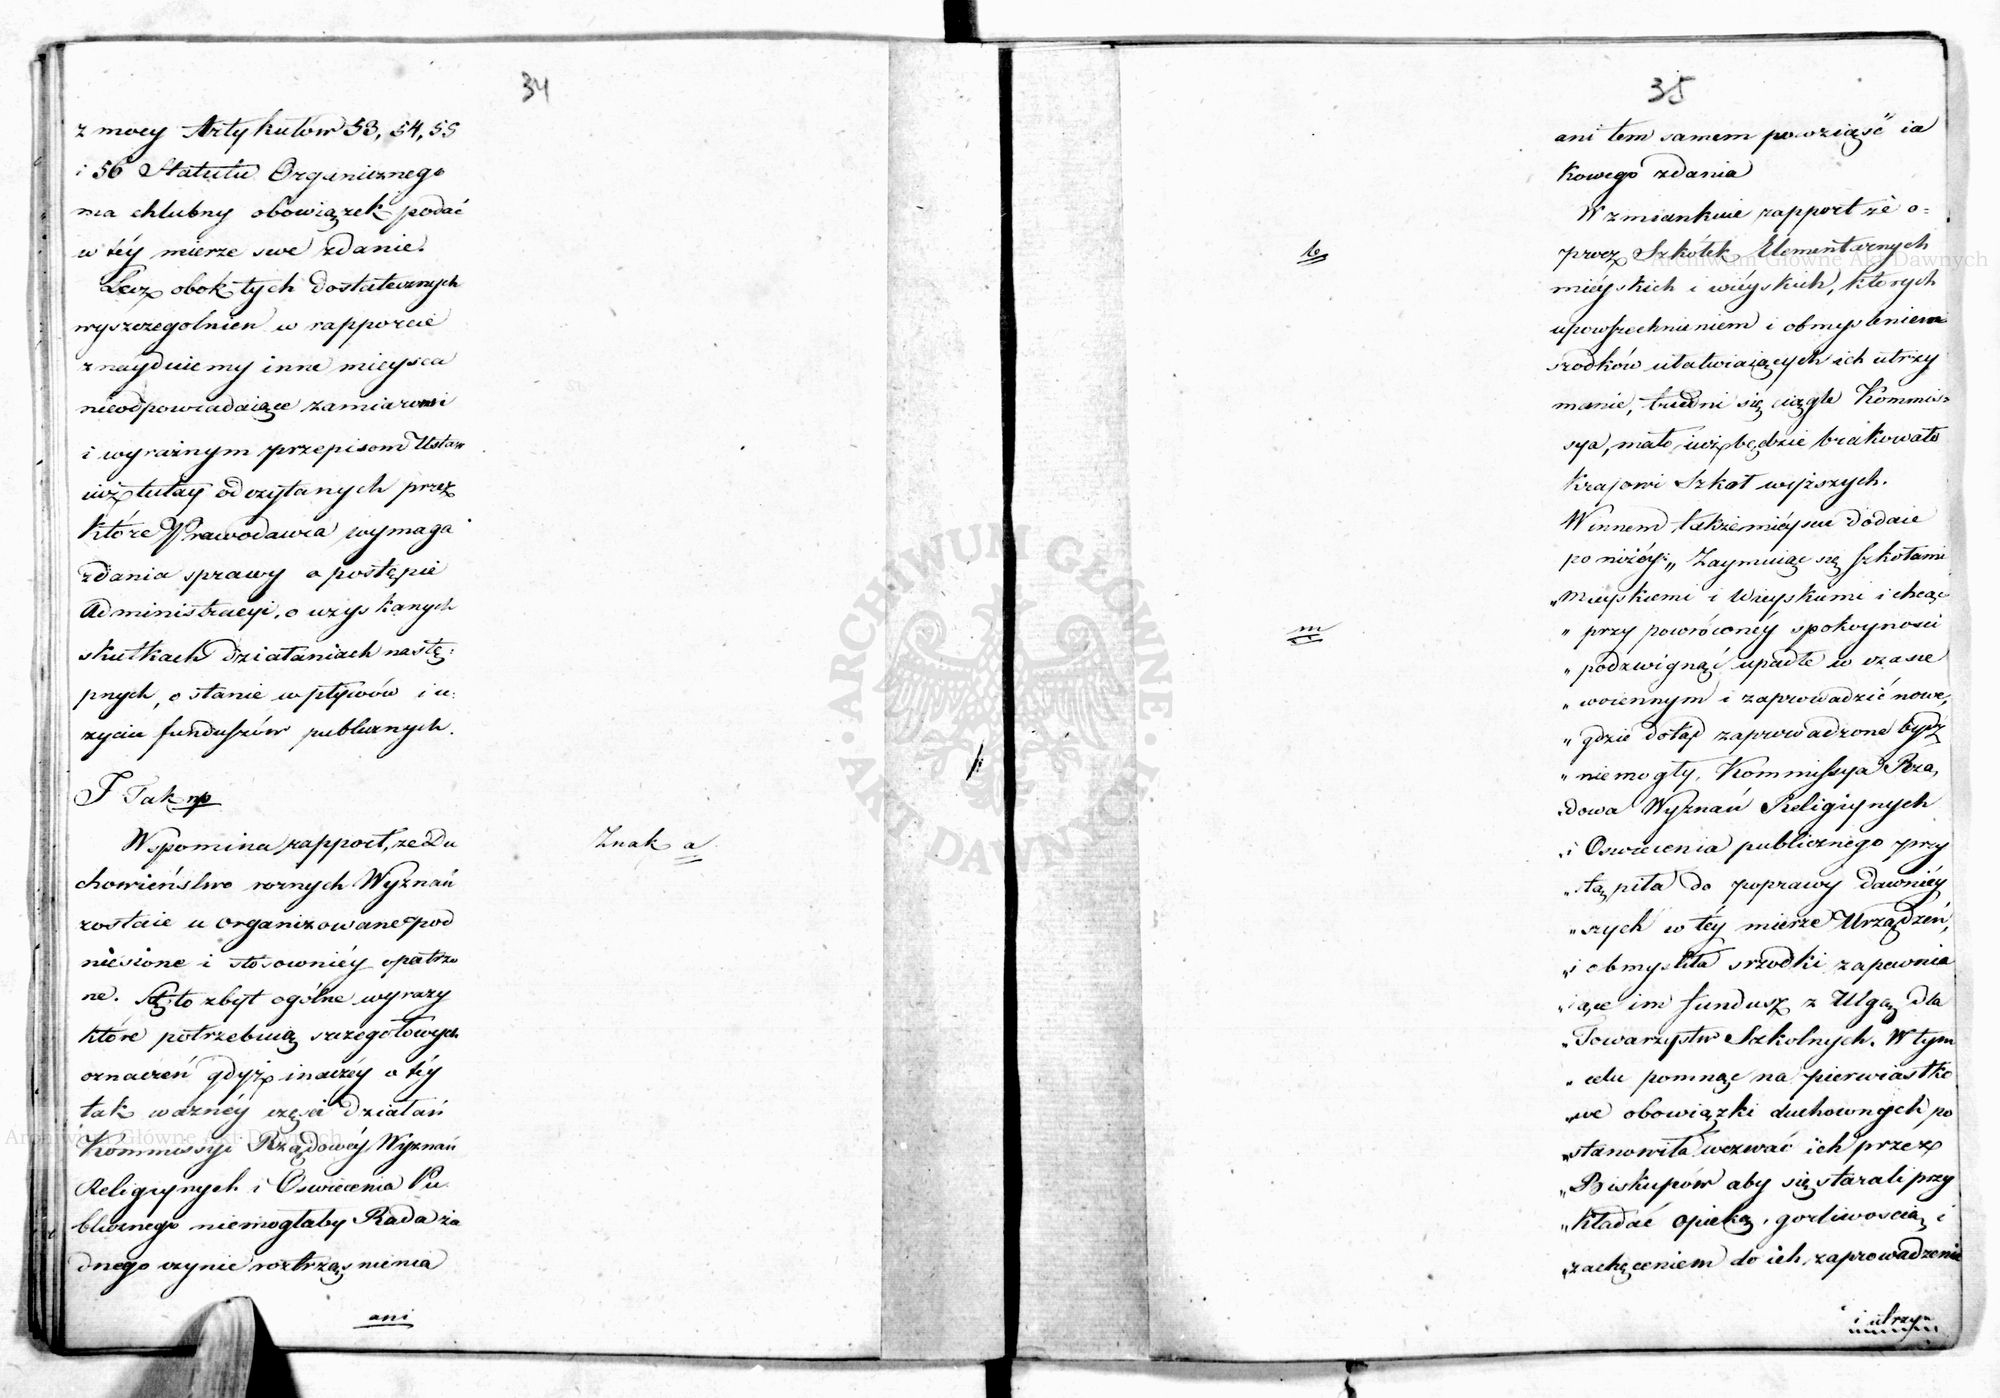 34
z mocy Artykułów 53, 54, 55
i 56 Statutu Organicznego
ma chlubny obowiązek podać
w téy mierze swe zdanie.
Lecz obok tych dostatecznych
wyszczegolnien w rapporcie
znayduiemy inne mieysca
nieodpowiadaiące zamiarowi
i wyraznym przepisom Usta„
iuż tutay odczytanych przez
które Prawodawca wymaga
zdania sprawy o postępie
Administracyi, o uzyskanych
skutkach działaniach nastę:
pnych, o stanie wpływów i u:
zyciu funduszów publicznych.
Tak np
Wspomina rapport, ze Du
chowieństwo roznych Wyznań
zostaie u organizowane pod
niesione i stosowniéy opatrzo
ne. Są to zbyt ogólne wyrazy
które potrzebuią szczegołowych
oznaczeń gdyż inaczéy o téy
tak wazney części działań
Kommissyi Rządowéy Wyznań
Religiynych i Oswiecenia Pu
blicznego niemogłaby Rada ża
dnego czynic roztrząsnienia
ani
Znak a
35
ani tem samem powziąść ia
kowego zdania
Wzmiankuie rapport że o=
procz Szkółek Elementarnych
mieyskich i wieyskich, których
upowszechnieniem i obmysleniem
srodków ułatwiaiących ich utrzy
manie, trudni się ciągle Kommis=
sya, mało iuż będzie brakowało
Krajowi Szkoł wyższych.
W innem także mieyscu dodaie
po niżéy: „Zaymuiąc się szkołami
„Mieyskiemi i Wieyskiemi i chcąc
„ przy powróconéy spokoyności
„ podzwignąć upadłe w czasie
„ woiennym i zaprowadzić nowe,
„ gdzie dotąd zaprowadzone bydź
„ niemogły, Kommissya Rzą,
„dowa Wyznań Religiynych
„i Oswiecenia publicznego przy
„stąpiła do poprawy dawniéy
„szych w téy mierze Urządzeń,
„i obmysliła srzodki zapewnia
„iące im fundusz z Ulgą dla
„Towarzystw Szkolnych. W tym
„ celu pomnąc na pierwiastko
„we obowiązki duchownych po
„stanowiła wezwać ich przez
„Biskupów aby się starali przy
„kładać opieką, gorliwoscią i
„zachęceniem do ich zaprowadzenia
i utrzy„
m
Archiwum Główne Akt Dawnych
Archiwum Główne Akt Dawnych
ARCHIWUM GŁÓWNE · AKT DAWNYCH ·